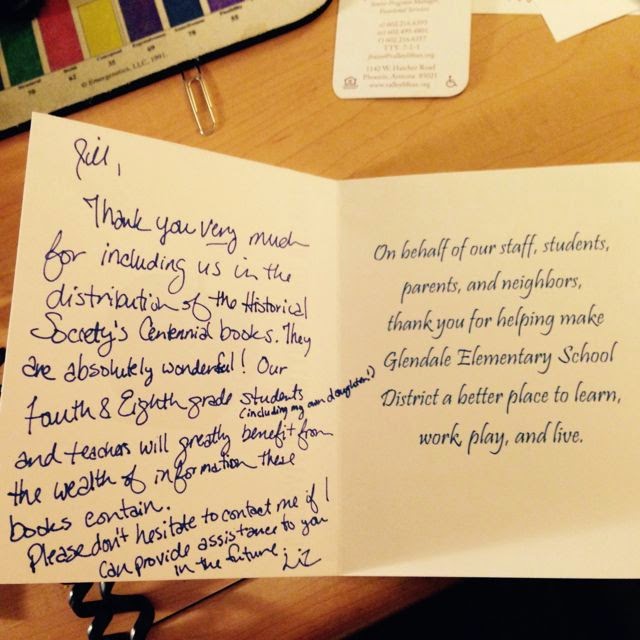 © Emergenetics, LLC, 1991.
Services
TTY: 7-1-1
1142 W. Hatcher Road
Phoenix, Arizona 85021
www.valleylifeaz.org
Jill,
Thank you very much
for including us in the
distribution of the Historical
Society's Centennial books. They
are absolutely wonderful! Our
Fourth & Eighth grade students
(including my own daughter!)
and teachers will greatly benefit from
the wealth of information these
books contain.
Please don't hesitate to contact me if I
can provide assistance to you
in the future. Liz
On behalf of our staff, students,
parents, and neighbors,
thank you for helping make
Glendale Elementary School
District a better place to learn,
work, play, and live.